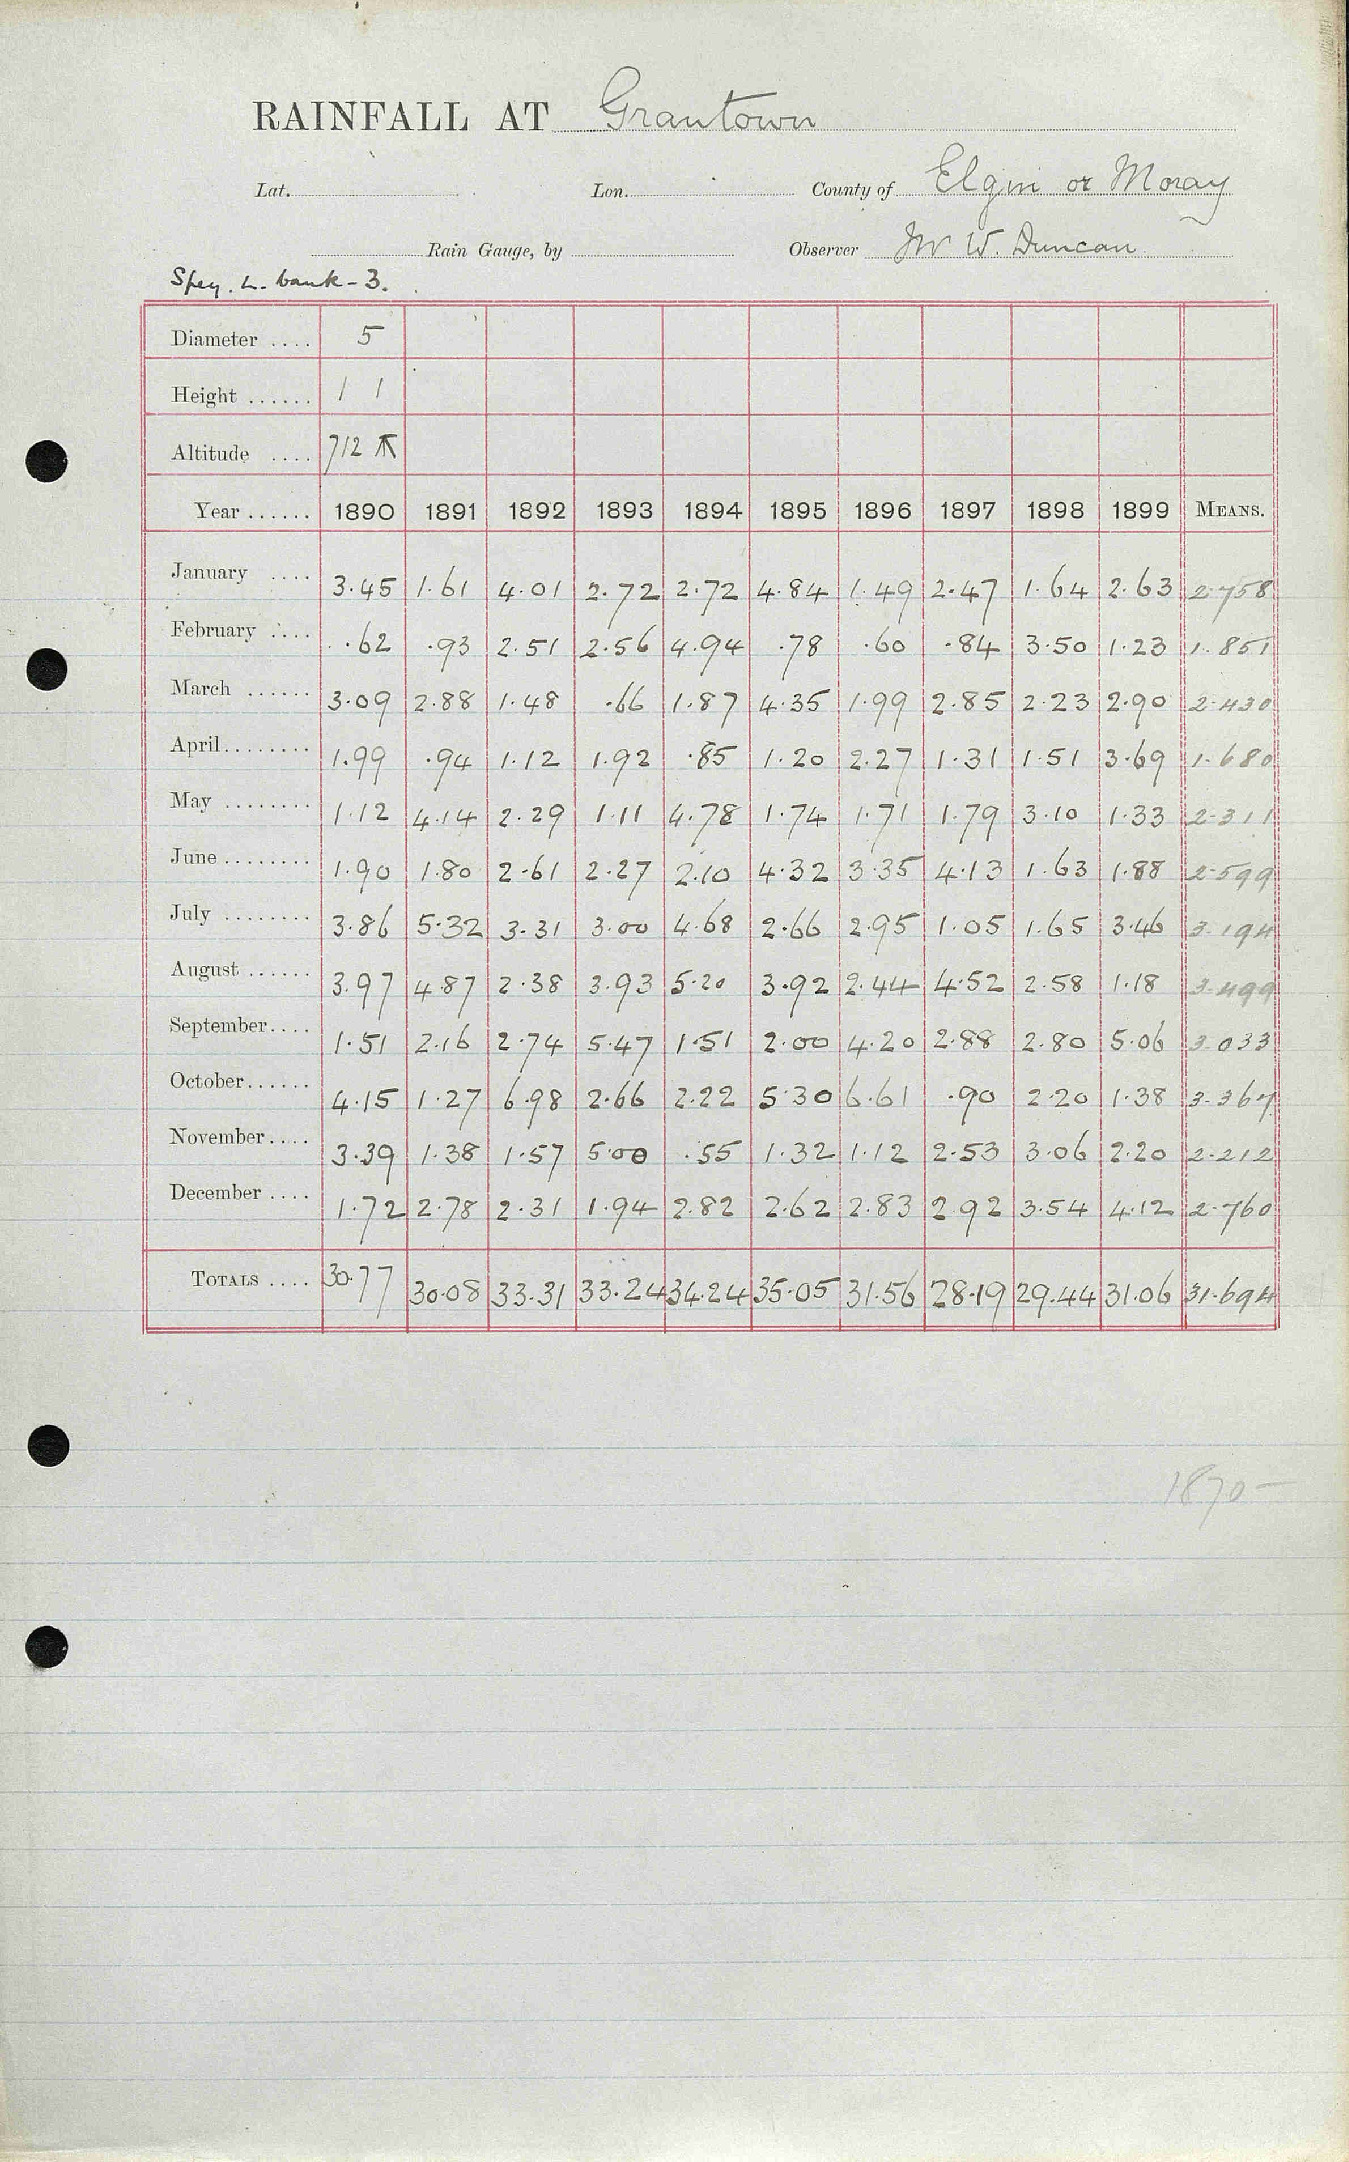 RAINFALL AT Grantown
Lat. Lon. County of Elgin or Moray
Rain Gauge, by Observer Mr W. Duncan
Spey. L. bank - 3.
Diameter .... 5
Height ...... 1 1
Altitude .... 712
Year ...... 1890 1891 1892 1893 1894 1895 1896 1897 1898 1899 MEANS.
January .... 3.45 1.61 4.01 2.72 2.72 4.84 1.49 2.47 1.64 2.63 2.758
February .... .62 .93 2.51 2.56 4.94 .78 .60 .84 3.50 1.23 1.851
March ...... 3.09 2.88 1.48 .66 1.87 4.35 1.99 2.85 2.23 2.90 2.430
April ........ 1.99 .94 1.12 1.92 .85 1.20 2.27 1.31 1.51 3.69 1.680
May ........ 1.12 4.14 2.29 1.11 4.78 1.74 1.71 1.79 3.10 1.33 2.311
June ........ 1.90 1.80 2.61 2.27 2.10 4.32 3.35 4.13 1.63 1.88 2.599
July ........ 3.86 5.32 3.31 3.00 4.68 2.66 2.95 1.05 1.65 3.46 3.194
August ...... 3.97 4.87 2.38 3.93 5.20 3.92 2.44 4.52 2.58 1.18 3.499
September .... 1.51 2.16 2.74 5.47 1.51 2.00 4.20 2.88 2.80 5.06 3.033
October ...... 4.15 1.27 6.98 2.66 2.22 5.30 6.61 .90 2.20 1.38 3.367
November .... 3.39 1.38 1.57 5.00 .55 1.32 1.12 2.53 3.06 2.20 2.212
December .... 1.72 2.78 2.31 1.94 2.82 2.62 2.83 2.92 3.54 4.12 2.760
TOTALS .... 30.77 30.08 33.31 33.24 34.24 35.05 31.56 28.19 29.44 31.06 31.694
1870-